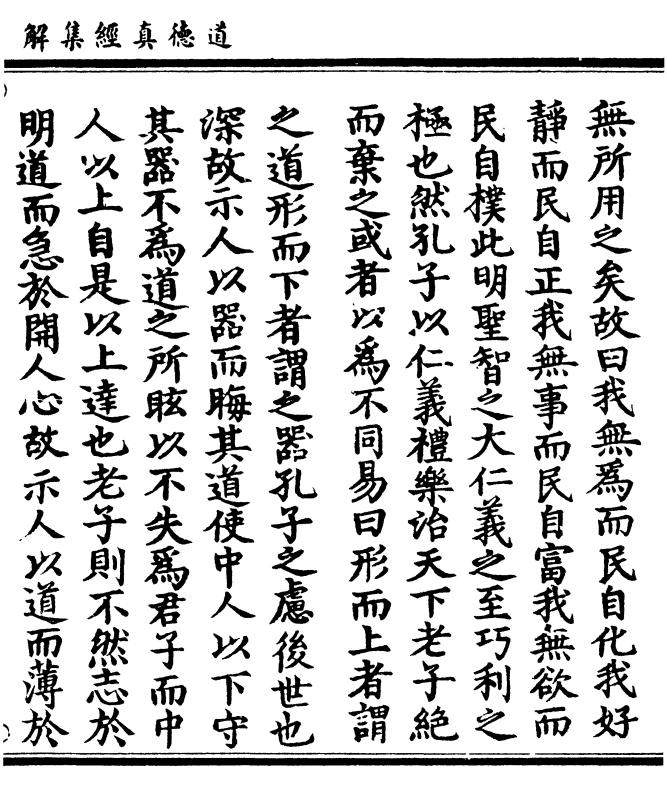 道德真經集解
無所用之矣故曰我無爲而民自化我好
靜而民自正我無事而民自富我無欲而
民自樸此明聖智之大仁義之至巧利之
極也然孔子以仁義禮樂治天下老子絕
而棄之或者以爲不同易曰形而上者謂
之道形而下者謂之器孔子之慮後世也
深故示人以器而晦其道使中人以下守
其器不爲道之所眩以不失爲君子而中
人以上自是以上達也老子則不然志於
明道而急於開人心故示人以道而薄於